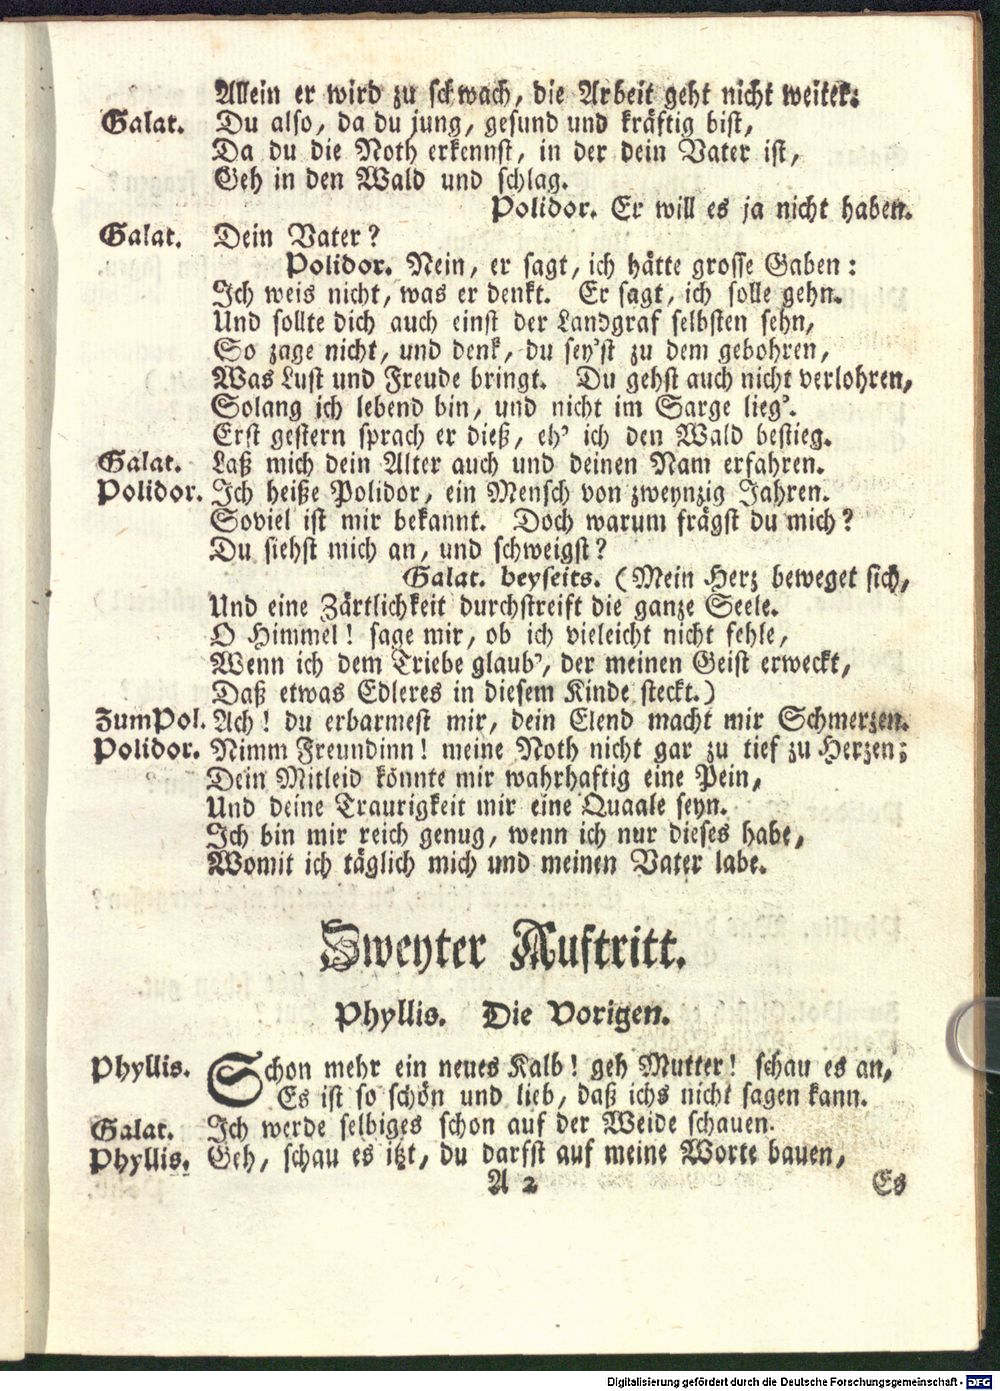 Allein er wird zu schwach, die Arbeit geht nicht weiter:
Galat. Du also, da du jung, gesund und kräftig bist,
Da du die Noth erkennst, in der dein Vater ist,
Geh in den Wald und schlag.
Polidor. Er will es ja nicht haben.
Galat. Dein Vater?
Polidor. Nein, er sagt, ich hätte grosse Gaben:
Ich weis nicht, was er denkt. Er sagt, ich solle gehn.
Und sollte dich auch einst der Landgraf selbsten sehn,
So zage nicht, und denk, du sey'st zu dem gebohren,
Was Lust und Freude bringt. Du gehst auch nicht verlohren,
Solang ich lebend bin, und nicht im Sarge lieg'.
Erst gestern sprach er dieß, eh' ich den Wald bestieg.
Galat. Laß mich dein Alter auch und deinen Nam erfahren.
Polidor. Ich heiße Polidor, ein Mensch von zweynzig Jahren.
Soviel ist mir bekannt. Doch warum frägst du mich?
Du siehst mich an, und schweigst?
Galat. beyseits. (Mein Herz beweget sich,
Und eine Zärtlichkeit durchstreift die ganze Seele.
O Himmel! sage mir, ob ich vieleicht nicht fehle,
Wenn ich dem Triebe glaub', der meinen Geist erweckt,
Daß etwas Edleres in diesem Kinde steckt.)
Zum Pol. Ach! du erbarmest mir, dein Elend macht mir Schmerzen.
Polidor. Nimm Freundinn! meine Noth nicht gar zu tief zu Herzen;
Dein Mitleid könnte mir wahrhaftig eine Pein,
Und deine Traurigkeit mir eine Quaale seyn.
Ich bin mir reich genug, wenn ich nur dieses habe,
Womit ich täglich mich und meinen Vater labe.
Zweyter Auftritt.
Phyllis. Die Vorigen.
Phyllis. Schon mehr ein neues Kalb! geh Mutter! schau es an,
Es ist so schön und lieb, daß ichs nicht sagen kann.
Galat. Ich werde selbiges schon auf der Weide schauen.
Phyllis. Geh, schau es itzt, du darfst auf meine Worte bauen,
A 2 Es
Digitalisierung gefördert durch die Deutsche Forschungsgemeinschaft - DFG